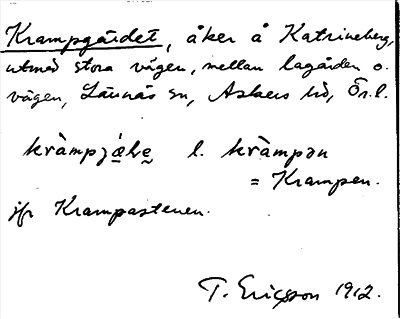 Krampgärdet, åker å Katrineberg,
utmed stora vägen, mellan lagården o.
vägen, Lännäs sn, Askers hd, Ör. l.
l. kràmpən
= Krampen.
jfr Krampastenen.
T. Ericsson 1912.